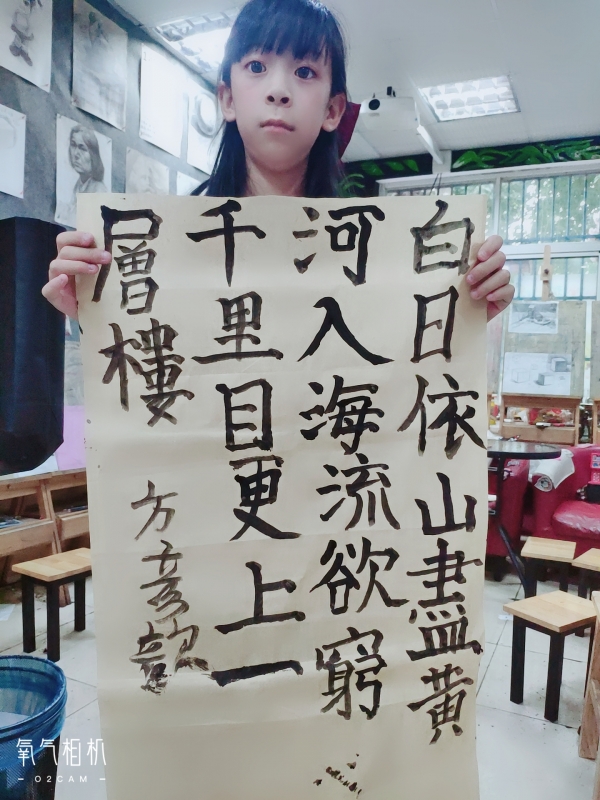 白日依山盡黃
河入海流欲窮
千里目更上一
層樓
方
氧气相机
– O2CAM –